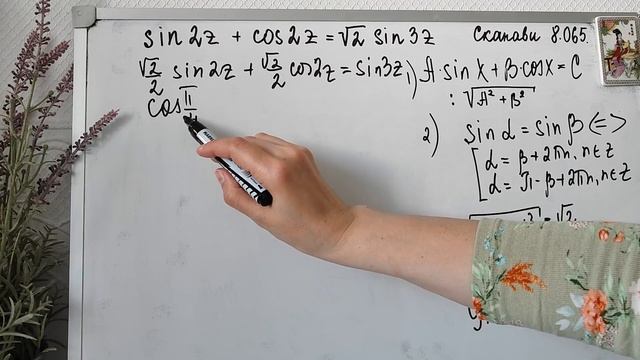 sin 2z + cos 2z = √2 sin 3z
Сканави 8.065.
√2/2 sin 2z + √2/2 cos 2z = sin 3z
cos π/4
1) A sin x + B cos x = C
: √A² + B²
2) sin α = sin β <=>
[ α = β + 2πn, n∈z
α = π - β + 2πn, n∈z